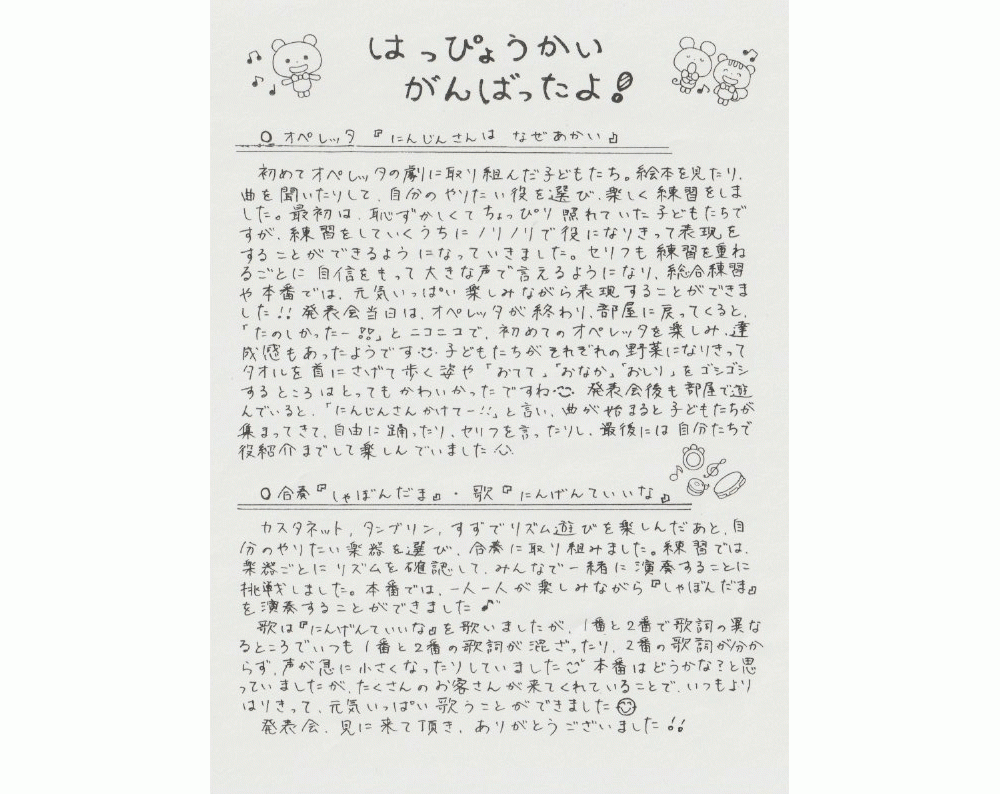 はっぴょうかい
がんばったよ!
○ オペレッタ 『にんじんさんは なぜあかい』
初めてオペレッタの劇に取り組んだ子どもたち。絵本を見たり、
曲を聞いたりして、自分のやりたい役を選び、楽しく練習をしま
した。最初は、恥ずかしくてちょっぴり照れていた子どもたちで
すが、練習をしていくうちにノリノリで役になりきって表現を
することができるようになっていきました。セリフも練習を重ね
るごとに自信をもって大きな声で言えるようになり、総合練習
や本番では、元気いっぱい楽しみながら表現することができま
した!!発表会当日は、オペレッタが終わり、部屋に戻ってくると、
「たのしかったー!!」とニコニコで、初めてのオペレッタを楽しみ、達
成感もあったようです 子どもたちがそれぞれの野菜になりきって
タオルを首にさげて歩く姿や「おてて」「おなか」「おしり」をゴシゴシ
するところはとってもかわいかったですね 発表会後も部屋で遊
んでいると、「にんじんさんかけてー!!」と言い、曲が始まると子どもたちが
集まってきて、自由に踊ったり、セリフを言ったりし、最後には自分たちで
役紹介までして楽しんでいました
○ 合奏『しゃぼんだま』・歌『にんげんていいな』
カスタネット、タンブリン、すずでリズム遊びを楽しんだあと、自
分のやりたい楽器を選び、合奏に取り組みました。練習では、
楽器ごとにリズムを確認して、みんなで一緒に演奏することに
挑戦しました。本番では、一人一人が楽しみながら『しゃぼんだま』
を演奏することができました♪
歌は『にんげんていいな』を歌いましたが、1番と2番で歌詞の異な
るところでいつも1番と2番の歌詞が混ざったり、2番の歌詞が分か
らず、声が急に小さくなったりしていました 本番はどうかな?と思
っていましたが、たくさんのお客さんが来てくれていることで、いつもより
はりきって、元気いっぱい歌うことができました
発表会、見に来て頂き、ありがとうございました!!